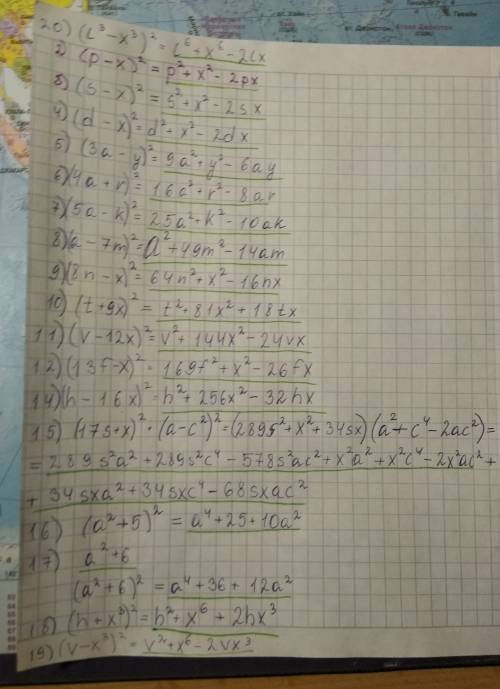 20) (c³-x³)² = c⁶+x⁶-2cx
2) (p-x)² = p²+x²-2px
3) (s-x)² = s²+x²-2sx
4) (d-x)² = d²+x²-2dx
5) (3a-y)² = 9a²+y²-6ay
6) (4a+r)² = 16a²+r²-8ar
7) (5a-k)² = 25a²+k²-10ak
8) (a-7m)² = a²+49m²-14am
9) (8n-x)² = 64n²+x²-16nx
10) (t+9x)² = t²+81x²+18tx
11) (v-12x)² = v²+144x²-24vx
12) (13f-x)² = 169f²+x²-26fx
14) (h-16x)² = h²+256x²-32hx
15) (17s+x)² · (a-c²)² = (289s²+x²+34sx)(a²+c⁴-2ac²) =
= 289s²a²+289s²c⁴-578s²ac²+x²a²+x²c⁴-2x²ac²+
+34sxa²+34sxc⁴-68sxac²
16) (a²+5)² = a⁴+25+10a²
17) a²+6
(a²+6)² = a⁴+36+12a²
18) (h+x³)² = h²+x⁶+2hx³
19) (v-x³)² = v²+x⁶-2vx³